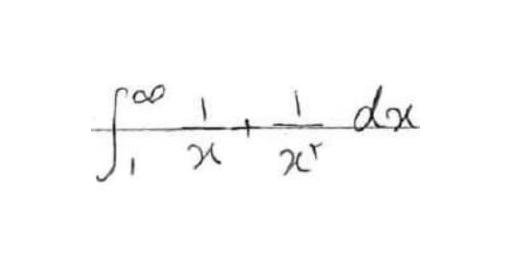 ∫₁^∞ 1/x + 1/x^٢ dx